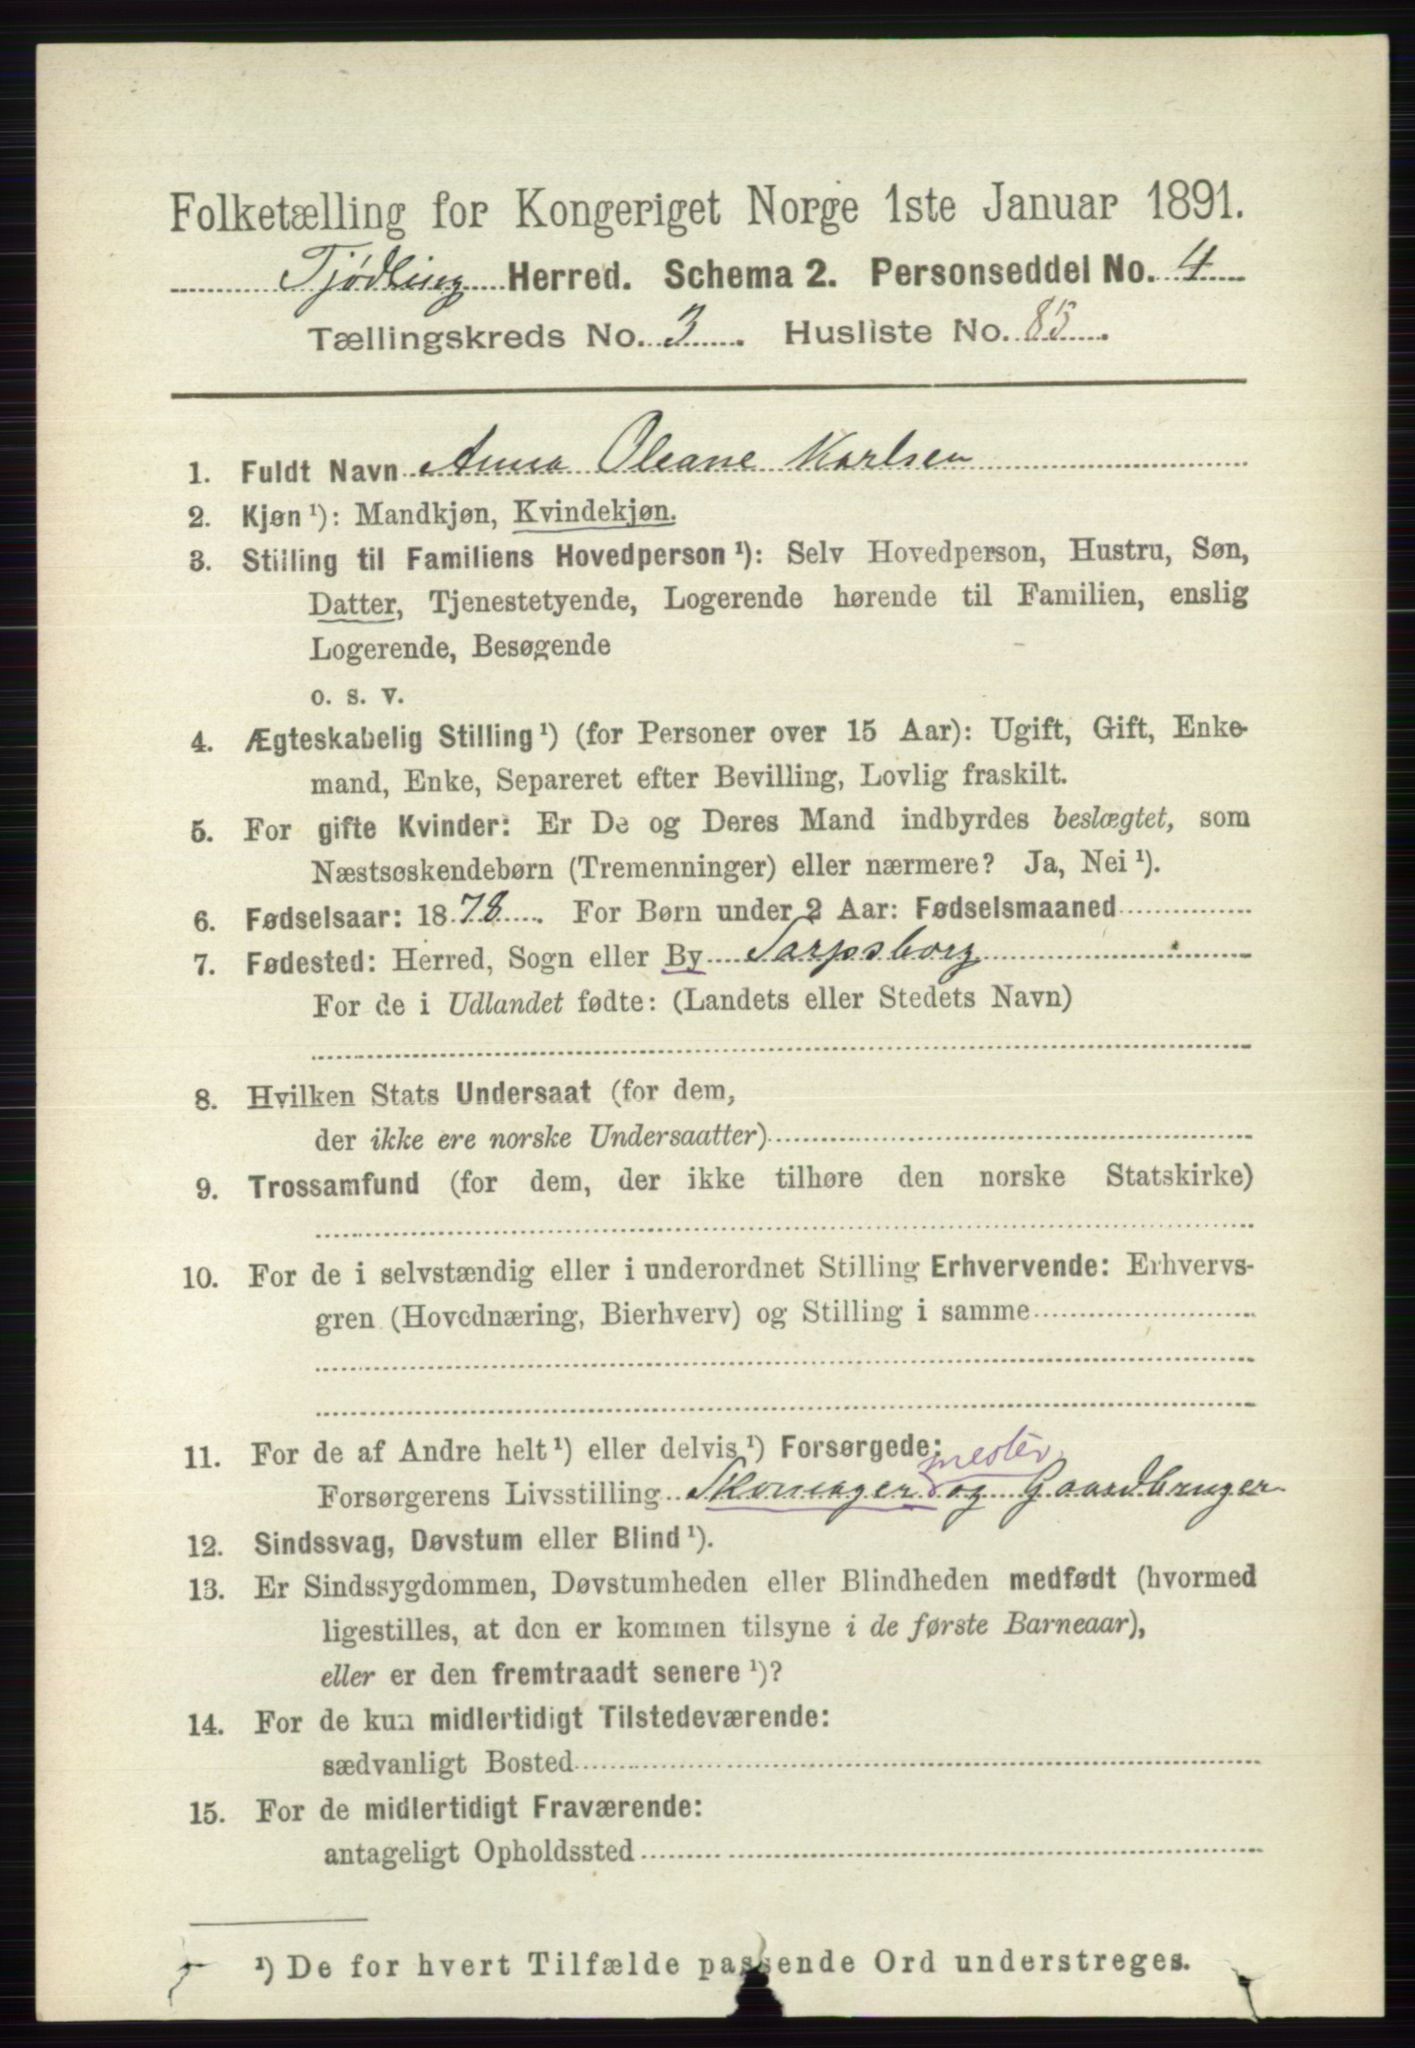 Folketælling for Kongeriget Norge 1ste Januar 1891.
Tjødling Herred. Schema 2. Personseddel No. 4
Tællingskreds No. 3. Husliste No. 85.
1. Fuldt Navn Anna Oleane Karlsen
2. Kjøn ¹): Mandkjøn, Kvindekjøn.
3. Stilling til Familiens Hovedperson ¹): Selv Hovedperson, Hustru, Søn,
Datter, Tjenestetyende, Logerende hørende til Familien, enslig
Logerende, Besøgende
o. s. v.
4. Ægteskabelig Stilling ¹) (for Personer over 15 Aar): Ugift, Gift, Enke-
mand, Enke, Separeret efter Bevilling, Lovlig fraskilt.
5. For gifte Kvinder: Er De og Deres Mand indbyrdes beslægtet, som
Næstsøskendebørn (Tremenninger) eller nærmere? Ja, Nei ¹).
6. Fødselsaar: 1878. For Børn under 2 Aar: Fødselsmaaned
7. Fødested: Herred, Sogn eller By Sarpsborg
For de i Udlandet fødte: (Landets eller Stedets Navn)
8. Hvilken Stats Undersaat (for dem,
der ikke ere norske Undersaatter)
9. Trossamfund (for dem, der ikke tilhøre den norske Statskirke)
10. For de i selvstændig eller i underordnet Stilling Erhvervende: Erhvervs-
gren (Hovednæring, Bierhverv) og Stilling i samme
11. For de af Andre helt ¹) eller delvis ¹) Forsørgede:
mester
Forsørgerens Livsstilling Skomager og Gaardbruger
12. Sindssvag, Døvstum eller Blind ¹).
13. Er Sindssygdommen, Døvstumheden eller Blindheden medfødt (hvormed
ligestilles, at den er kommen tilsyne i de første Barneaar),
eller er den fremtraadt senere ¹)?
14. For de kun midlertidigt Tilstedeværende:
sædvanligt Bosted
15. For de midlertidigt Fraværende:
antageligt Opholdssted
¹) De for hvert Tilfælde passende Ord understreges.